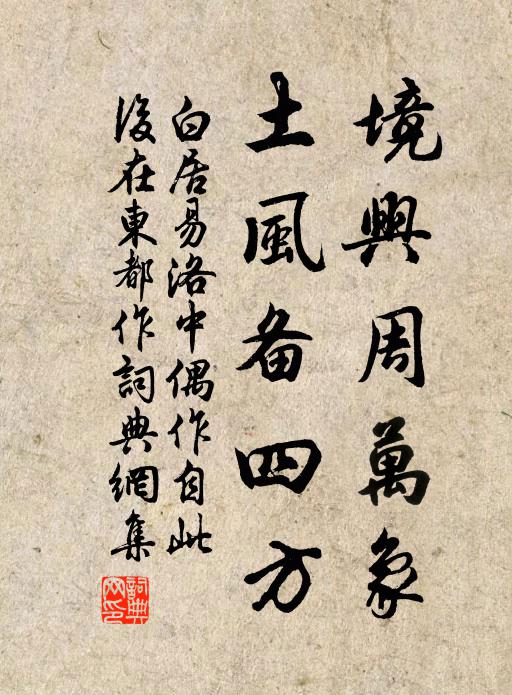 境興周萬象
土風备四方
白居易洛中偶作自此
後在東都作詞典網集
詞典
网印